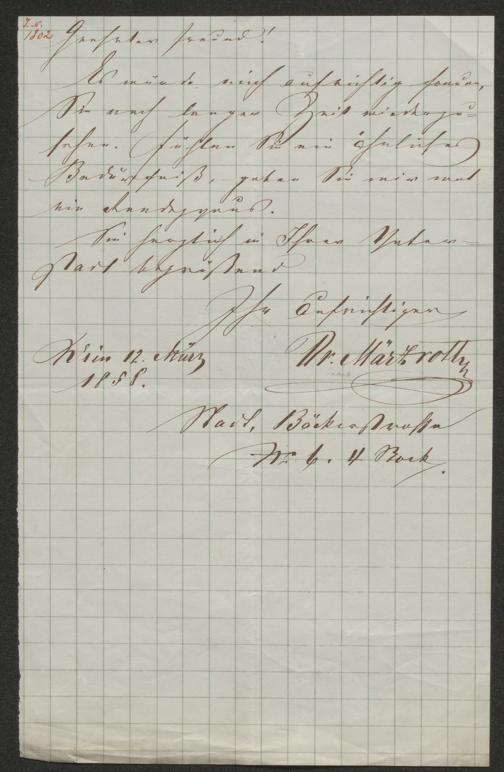 I. N.
1802
Geehrter Freund!
Es würde mich aufrichtig freuen,
Sie nach langer Zeit wiederzu-
sehen. Fühlen Sie ein ähnliches
Bedürfniß, geben Sie mir mal
ein Rendezvous.
Sie herzlich in Ihrer Vater-
stadt begrüßend
Ihr Aufrichtiger
Dr. Märzroth
Wien 12. März
1858.
Stadt, Bäckerstrasse
Nr. 6. 4 Stock